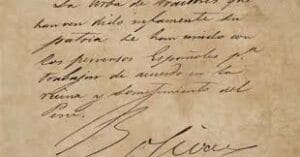 La turba de traidores que
han vendido infamemente su
patria se han unido con
los perversos Españoles pª
trabajar de acuerdo en la
ruina y somitimiento del
Perú.
Bolívar